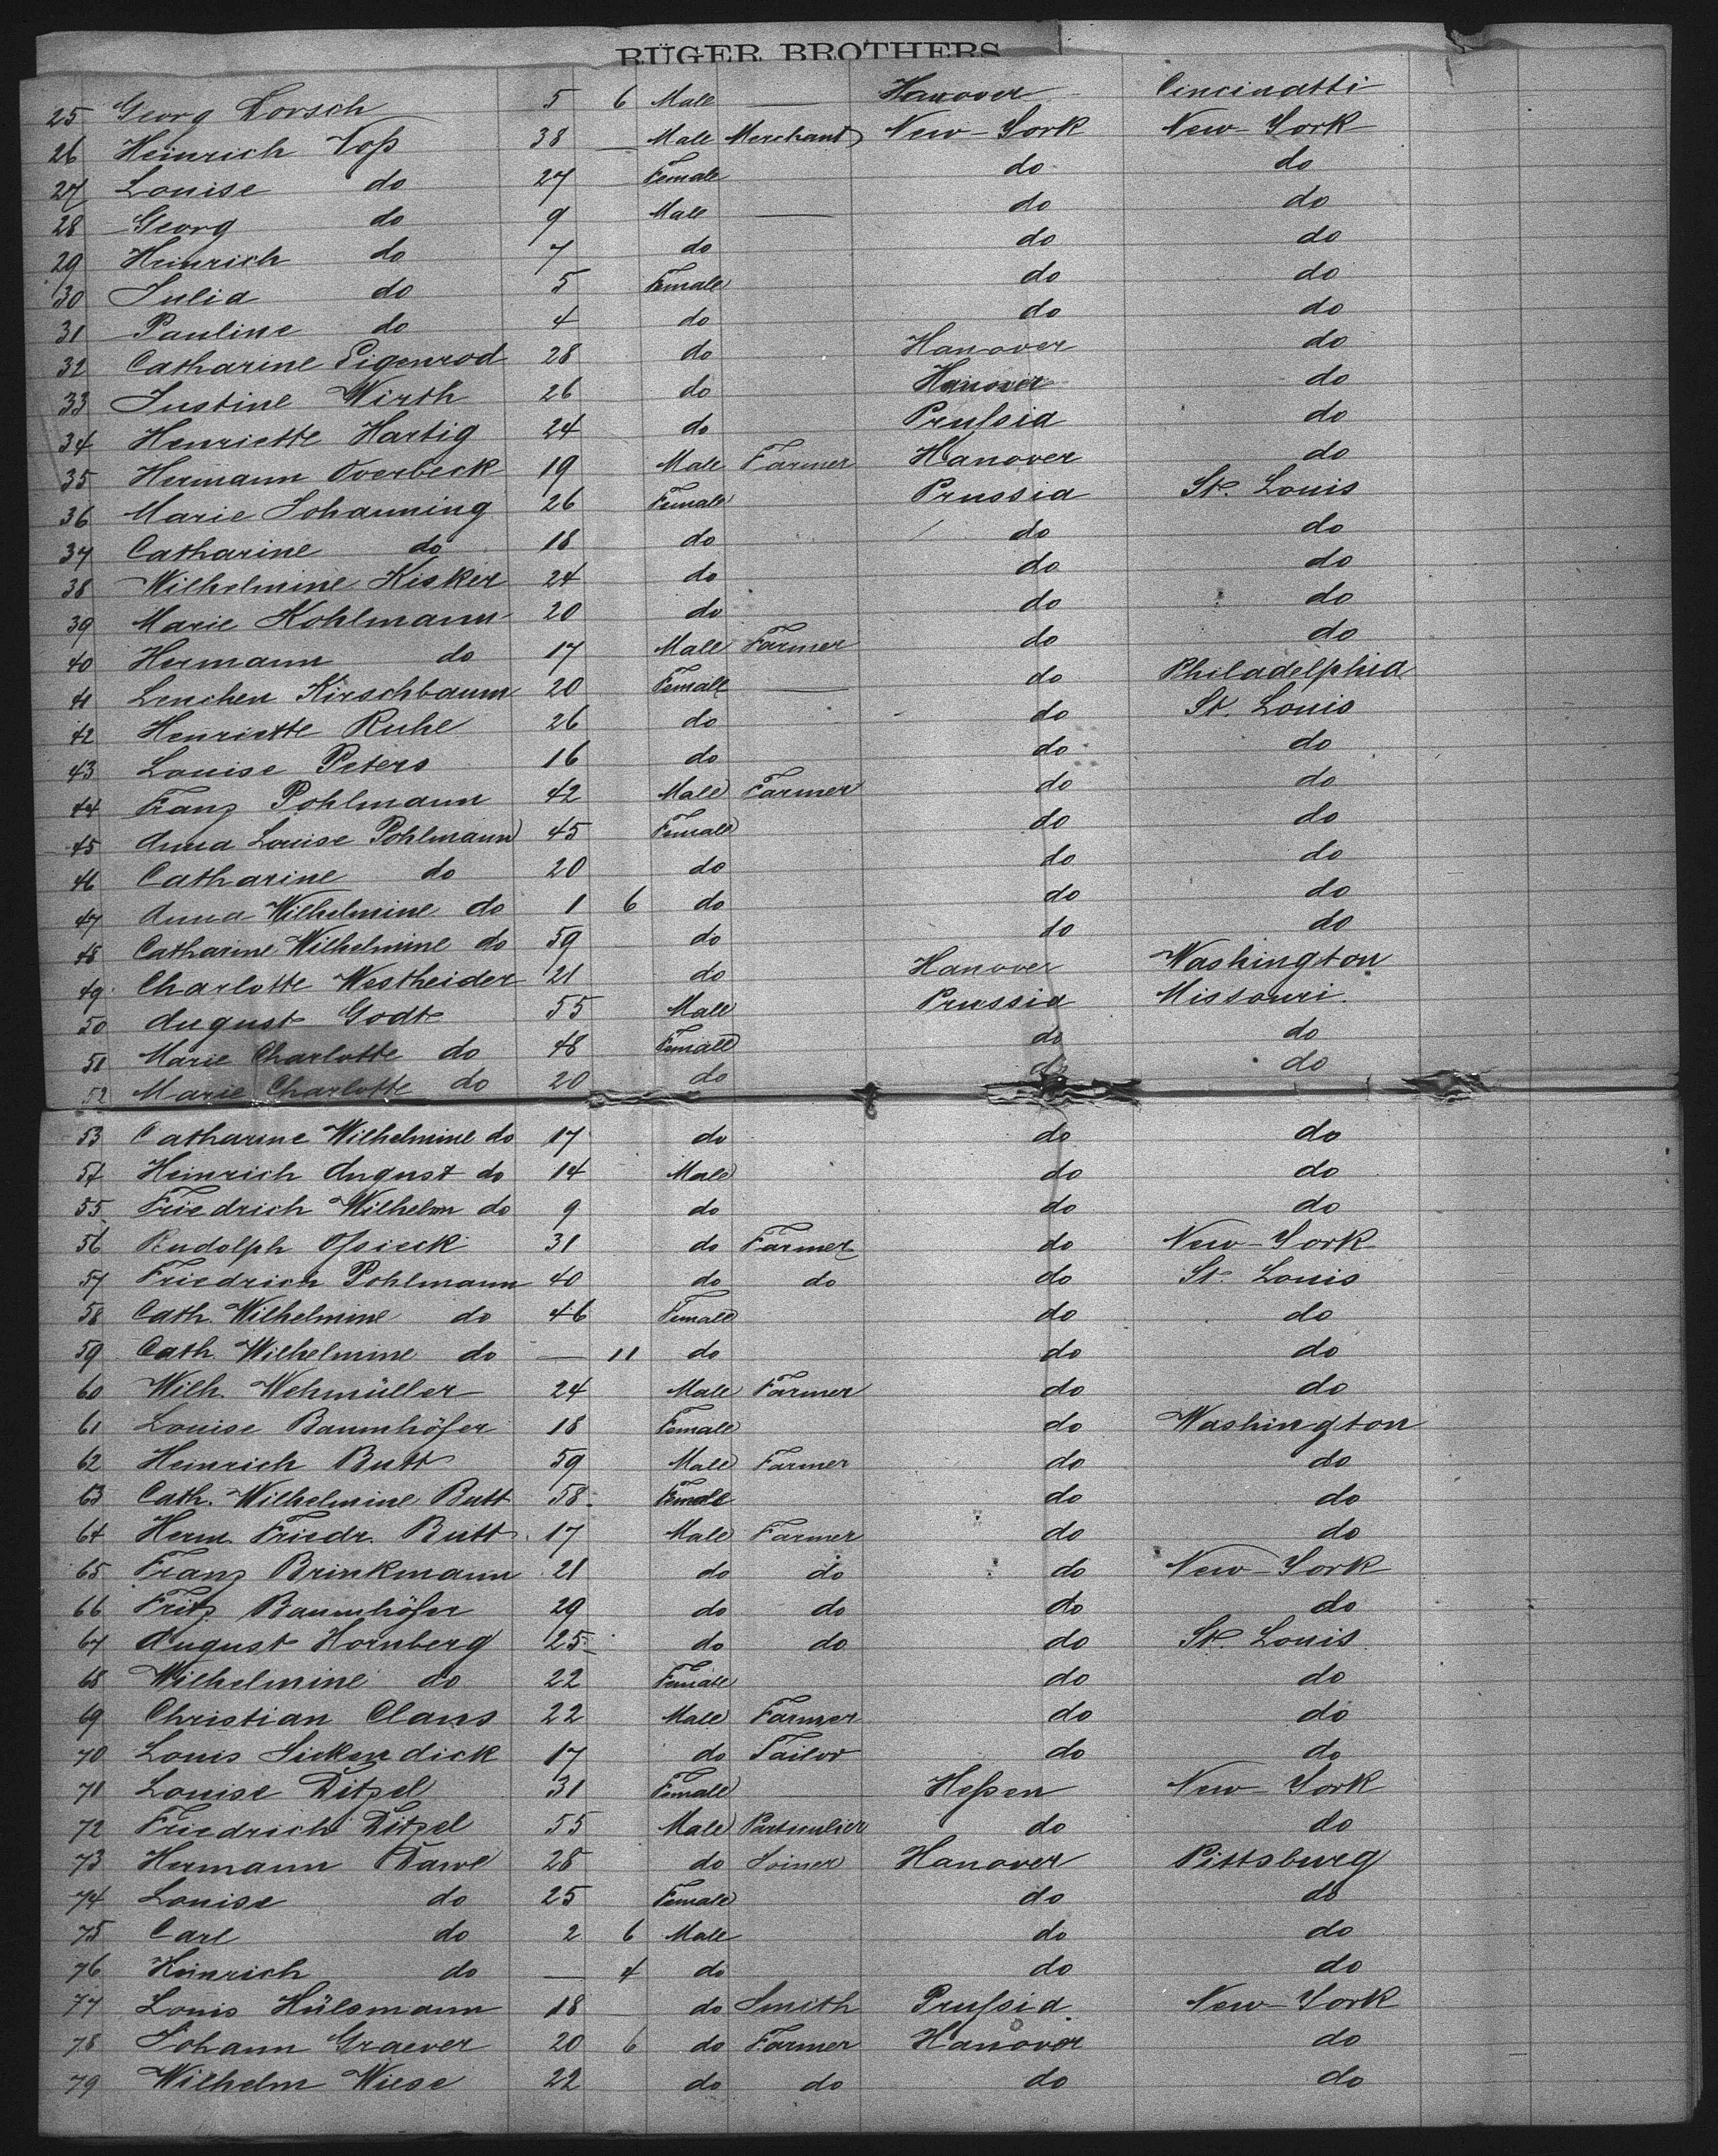 RÜGER BROTHERS
25 Georg Dorsch 5 6 Male — Hanover Cincinatti
26 Heinrich Voß 38 — Male Merchant New-York New-York
27 Louise do 27 Female do do
28 Georg do 9 Male — do do
29 Heinrich do 7 do do do
30 Julia do 5 Female do do
31 Pauline do 4 do do do
32 Catharine Eigenrod 28 do Hanover do
33 Justine Wirth 26 do Hanover do
34 Henriette Hartig 24 do Prußia do
35 Hermann Overbeck 19 Male Farmer Hanover do
36 Marie Johanning 26 Female Prussia St. Louis
37 Catharine do 18 do do do
38 Wilhelmine Kisker 24 do do do
39 Marie Kohlmann 20 do do do
40 Hermann do 17 Male Farmer do do
41 Lenchen Kirschbaum 20 Female — do Philadelphia
42 Henriette Ruhe 26 do do St. Louis
43 Louise Peters 16 do do do
44 Franz Pohlmann 42 Male Farmer do do
45 Anna Louise Pohlmann 45 Female do do
46 Catharine do 20 do do do
47 Anna Wilhelmine do 1 6 do do do
48 Catharine Wilhelmine do 59 do do do
49 Charlotte Westheider 21 do Hanover Washington
50 August Godt 55 Male Prussia Missouri
51 Marie Charlotte do 48 Female do do
52 Marie Charlotte do 20 do do do
53 Catharine Wilhelmine do 17 do do do
54 Heinrich August do 14 Male do do
55 Friedrich Wilhelm do 9 do do do
56 Rudolph Oßieck 31 do Farmer do New-York
57 Friedrich Pohlmann 40 do do do St. Louis
58 Cath. Wilhelmine do 46 Female do do
59 Cath. Wilhelmine do — 11 do do do
60 Wilh. Wehmüller 24 Male Farmer do do
61 Louise Baumhöfer 18 Female do Washington
62 Heinrich Butt 59 Male Farmer do do
63 Cath. Wilhelmine Butt 58 Female do do
64 Herm. Friedr. Butt 17 Male Farmer do do
65 Franz Brinkmann 21 do do do New-York
66 Fritz Baumhöfer 29 do do do do
67 August Hornberg 25 do do do St. Louis
68 Wilhelmine do 22 Female do do
69 Christian Claus 22 Male Farmer do do
70 Louis Sickendick 17 do Tailor do do
71 Louise Ditzel 31 Female Heßen New-York
72 Friedrich Ditzel 55 Male Particulier do do
73 Hermann Dawe 28 do Joiner Hanover Pittsburg
74 Louise do 25 Female do do
75 Carl do 2 6 Male do do
76 Heinrich do — 4 do do do
77 Louis Hülsmann 18 do Smith Prußia New-York
78 Johann Graever 20 6 do Farmer Hanover do
79 Wilhelm Wiese 22 do do do do